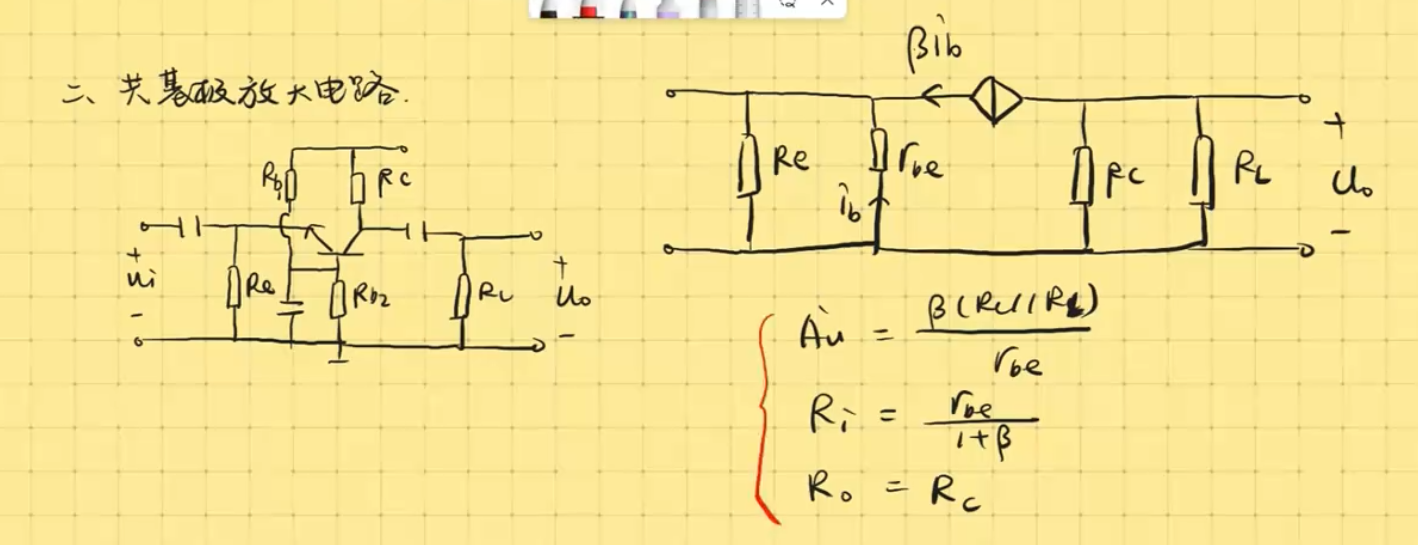 二、共基极放大电路.
Rb1
Rc
+
ui
-
Re
Rb2
RL
+
uo
-
βib
Re
rbe
ib
Rc
RL
+
Uo
-
Ȧu = β(Rc//RL) / rbe
Ri = rbe / 1+β
Ro = Rc